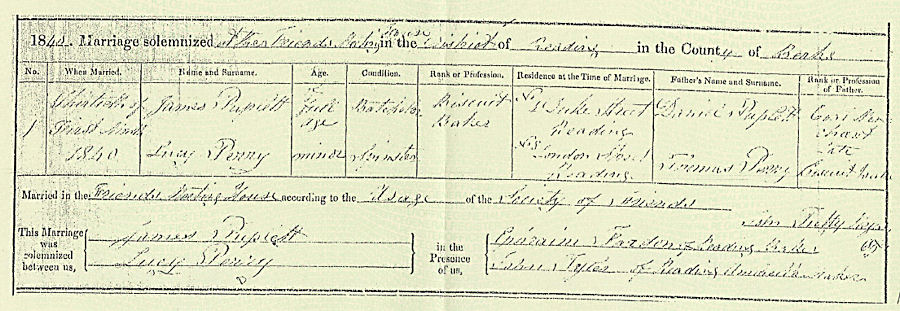 1840. Marriage solemnized at the Friends Meeting House in the District of Reading in the County of Berks
No. When Married. Name and Surname. Age. Condition. Rank or Profession. Residence at the Time of Marriage. Father's Name and Surname. Rank or Profession of Father.
1 Thirtieth of First Month 1840 James Full age Batchelor Biscuit Baker No Duke Street Reading Daniel Corn Merchant
Lucy Perry minor Spinster No London Road Reading Thomas Perry late Biscuit
Married in the Friends Meeting House according to the Usage of the Society of Friends
This Marriage was solemnized between us, James Lucy Perry in the Presence of us, Ephraim of Reading John Tyler of Reading